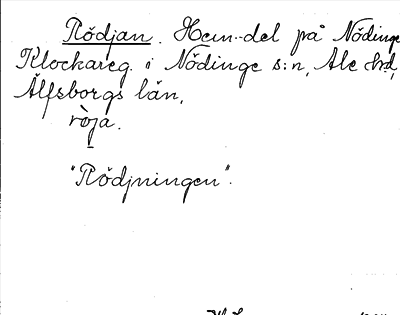 Rödjan. Hem.-del på Nödinge
Klockareg. i Nödinge s:n, Ale hd,
Älfsborgs län,
ròja.
"Rödjningen".